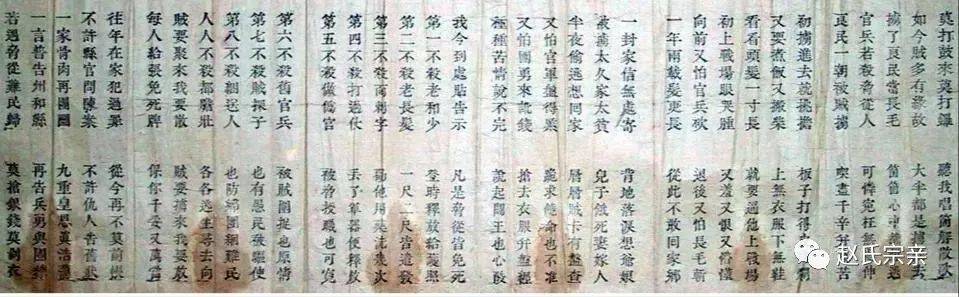 莫打鼓來莫打鑼 聽我唱箇解散歌
如今賊多有緣故 大半都是擄進去
擄了良民當長毛 箇箇心中都想逃
官兵若殺脅從人 可憐冤枉無處伸
良民一朝被賊擄 喫盡千辛並萬苦
初擄進去就挑擔 板子打得皮肉爛
又要煮飯又搬柴 上無衣服下無鞋
看看頭髮一寸長 就要逼他上戰場
初上戰場眼哭腫 又羞又恨又懵懂
向前又怕官兵砍 退後又怕長毛斬
一年兩載髮更長 從此不敢回家鄉
一封家信無處寄 背地落淚想爺娘
被擄太久家太貧 兒子餓死妻嫁人
半夜偷逃想回家 層層賊卡有盤查
又怕官軍盤得緊 跪求饒命也不准
又怕團勇來訛錢 搶去衣服并盤纏
種種苦情說不完 說起閻王也心酸
我今到處貼告示 凡是脅從皆免死
第一不殺老和少 登時釋放給護照
第二不殺老長髮 一尺二尺皆遣發
第三不殺面刺字 勸他用藥洗幾次
第四不殺打過仗 丟了軍器便釋放
第五不殺做偽官 被脅授職也可寬
第六不殺舊官兵 被賊圍捉也原情
第七不殺賊探子 也有愚民被驅使
第八不殺綑送人 也防鄉團綑難民
人人不殺都膽壯 各各逃生尋去向
賊要聚來我要散 賊要擄來我要放
每人給張免死牌 保你千妥又萬當
往年在家犯過罪 從今再不算前賬
不許縣官問陳案 不許仇人告舊狀
一家骨肉再團圓 九重皇恩真浩蕩
一言普告州和縣 再告兵勇與團練
若遇脅從難民歸 莫搶銀錢莫剝衣
赵氏宗亲